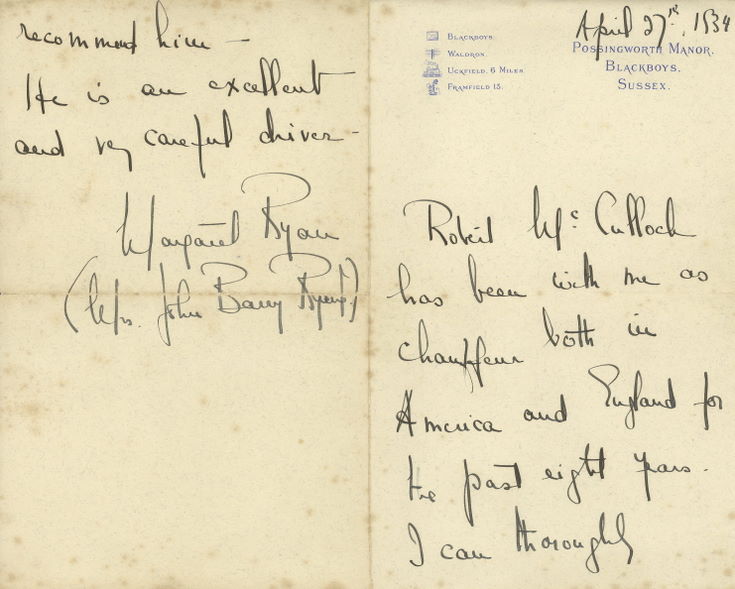 April 27th, 1934
BLACKBOYS.
WALDRON.
UCKFIELD. 6 MILES
FRAMFIELD 15.
POSSINGWORTH MANOR.
BLACKBOYS.
SUSSEX.
Robert McCulloch
has been with me as
chauffeur both in
America and England for
the past eight years.
I can thoroughly
recommend him —
He is an excellent
and very careful driver —
Margaret Ryan
(Mrs. John Barry Ryan)